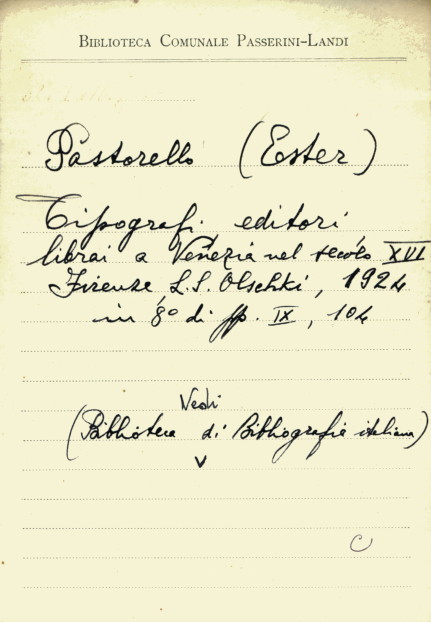 BIBLIOTECA COMUNALE PASSERINI-LANDI
Pastorello (Ester)
Tipografi editori
librai a Venezia nel secolo XVI
Firenze L. S. Olschki, 1924
in 8° di pp. IX, 104
Vedi
(Biblioteca di Bibliografia italiana)
V
C